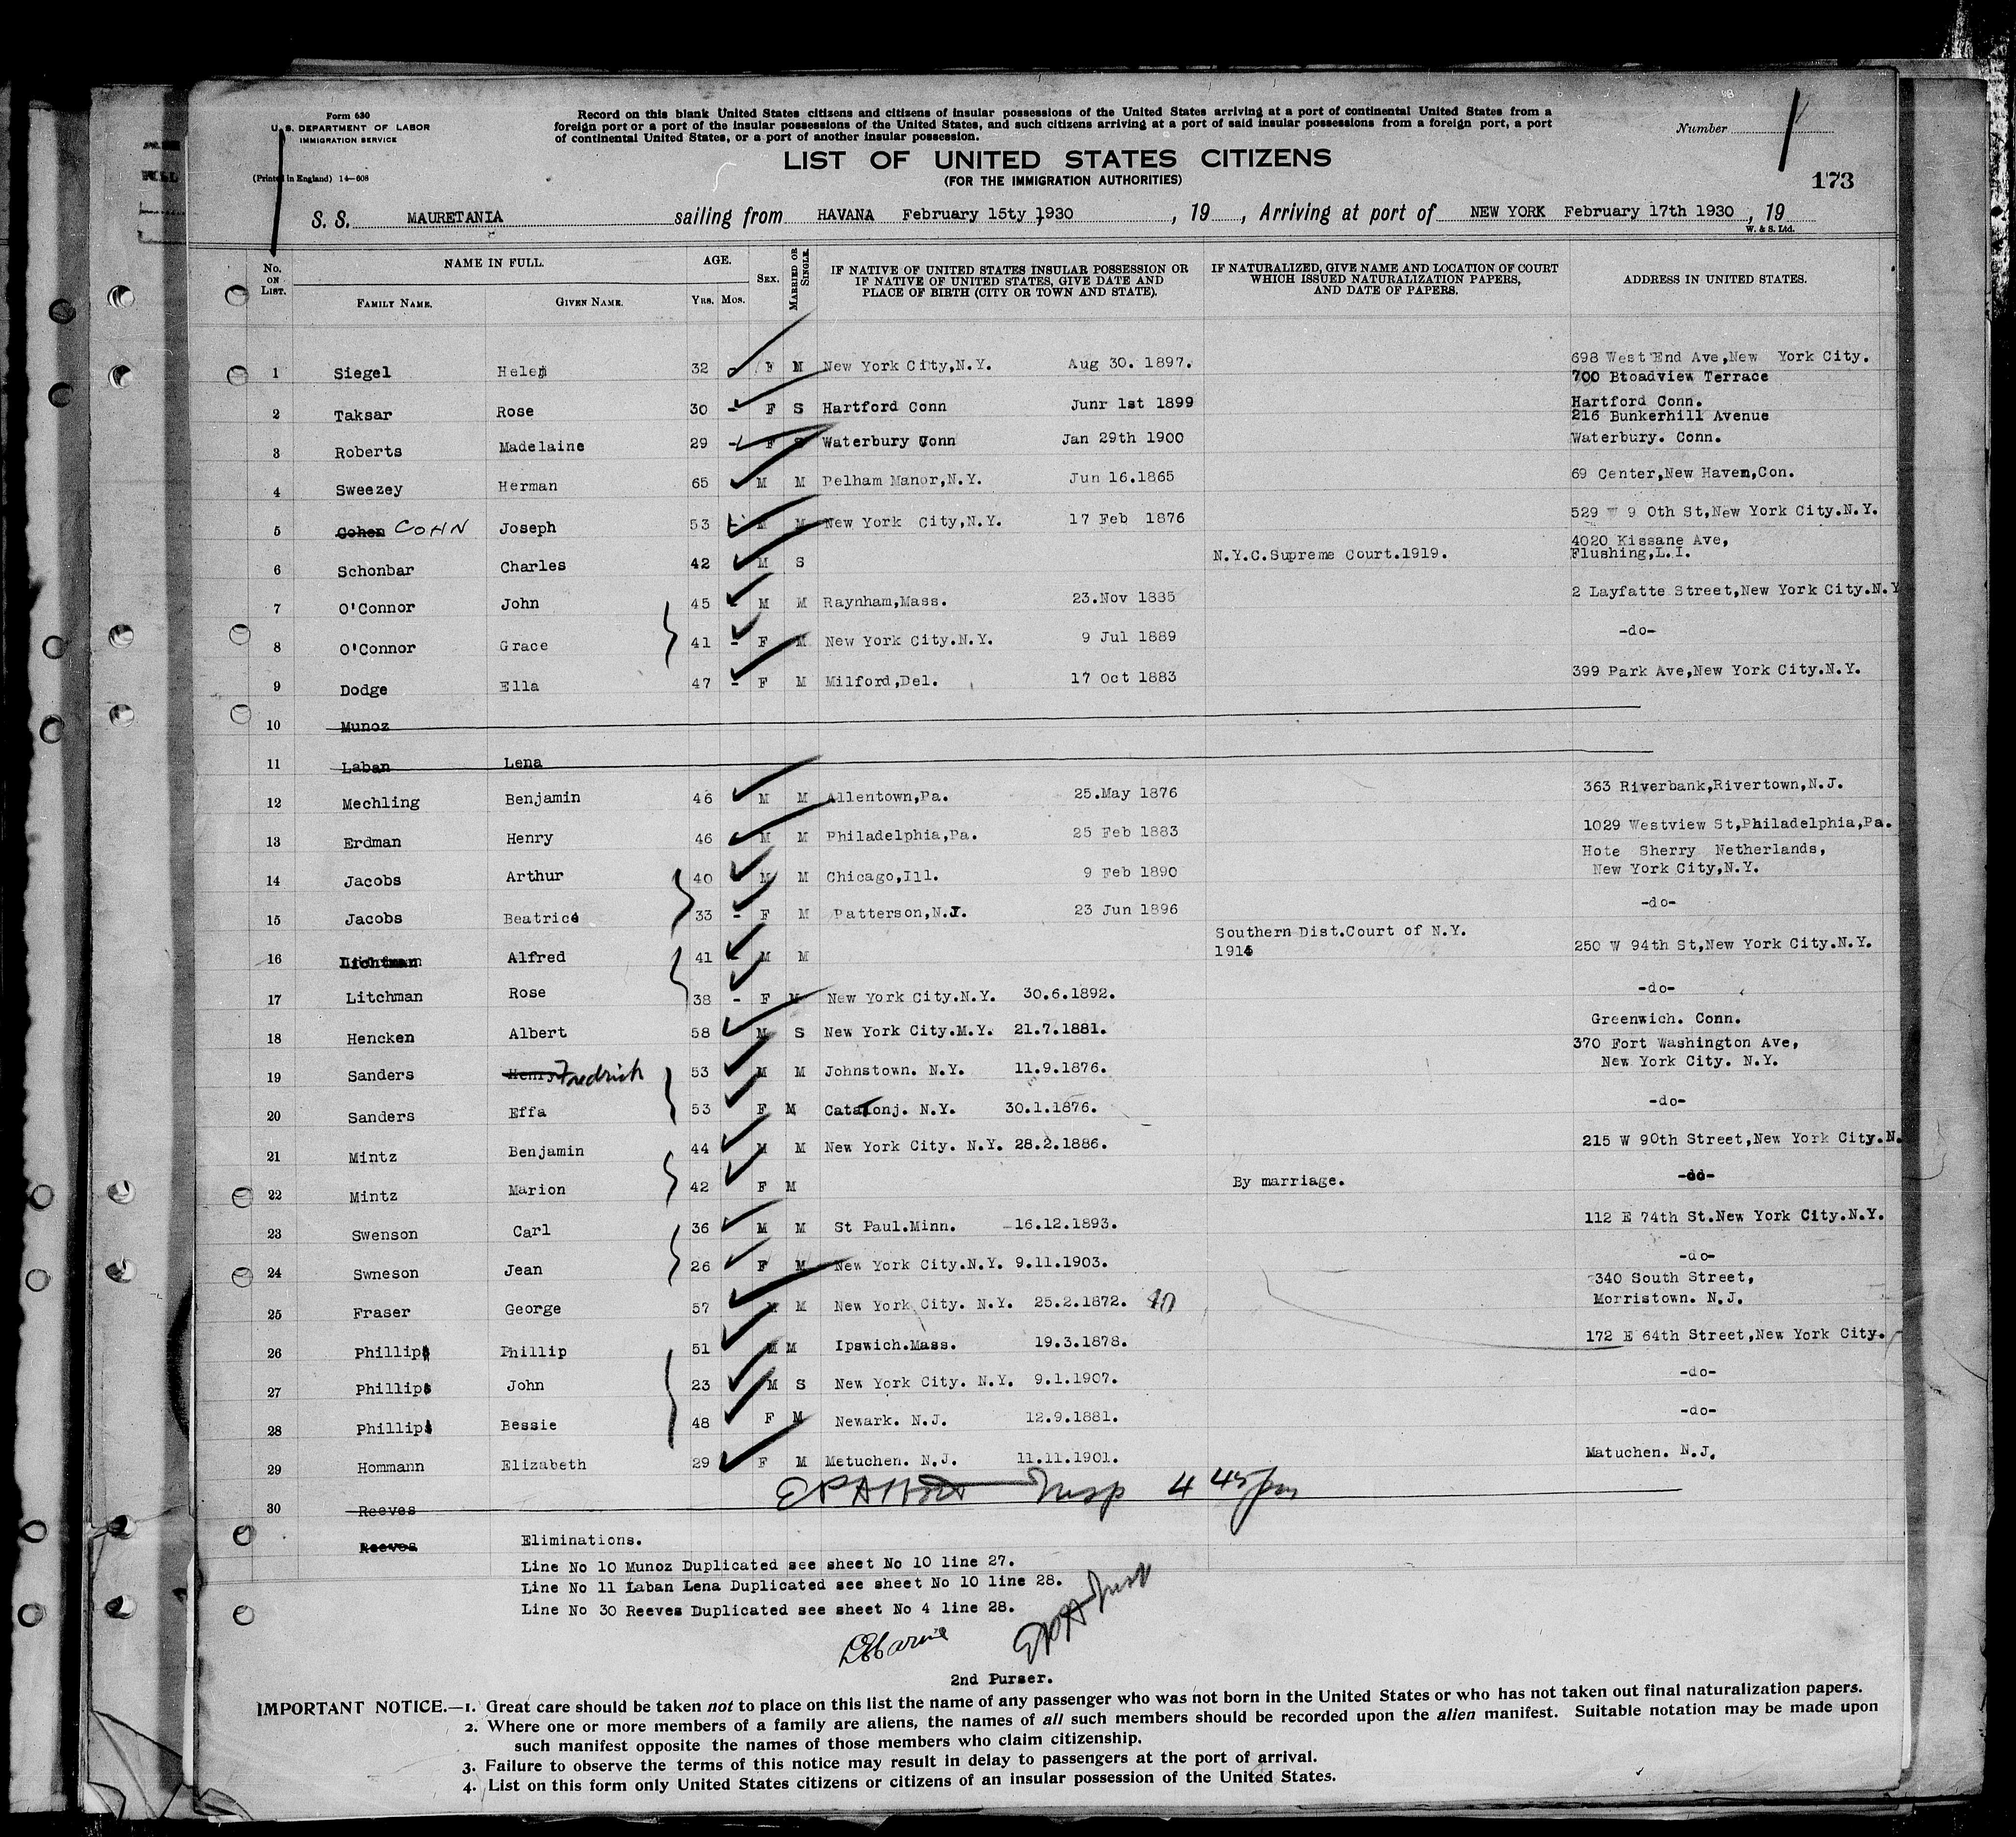 Form 630
U. S. DEPARTMENT OF LABOR
IMMIGRATION SERVICE
(Printed in England) 14—608
Record on this blank United States citizens and citizens of insular possessions of the United States arriving at a port of continental United States from a
foreign port or a port of the insular possessions of the United States, and such citizens arriving at a port of said insular possessions from a foreign port, a port
of continental United States, or a port of another insular possession.
Number
LIST OF UNITED STATES CITIZENS
(FOR THE IMMIGRATION AUTHORITIES)
173
S. S. MAURETANIA sailing from HAVANA February 15ty 1930, 19, Arriving at port of NEW YORK February 17th 1930, 19
W. & S. Ltd.
No. ON LIST. NAME IN FULL. AGE. SEX. MARRIED OR SINGLE. IF NATIVE OF UNITED STATES INSULAR POSSESSION OR IF NATIVE OF UNITED STATES, GIVE DATE AND PLACE OF BIRTH (CITY OR TOWN AND STATE). IF NATURALIZED, GIVE NAME AND LOCATION OF COURT WHICH ISSUED NATURALIZATION PAPERS, AND DATE OF PAPERS. ADDRESS IN UNITED STATES.
FAMILY NAME. GIVEN NAME. YRS. MOS.
1 Siegel Helen 32 F M New York City,N.Y. Aug 30. 1897. 698 West End Ave,New York City.
2 Taksar Rose 30 - F S Hartford Conn Junr 1st 1899 700 Btoadview Terrace Hartford Conn.
3 Roberts Madelaine 29 - F S Waterbury Conn Jan 29th 1900 216 Bunkerhill Avenue Waterbury. Conn.
4 Sweezey Herman 65 M M Pelham Manor,N.Y. Jun 16.1865 69 Center,New Haven,Con.
5 Cohen COHN Joseph 53 - M M New York City,N.Y. 17 Feb 1876 529 W 9 0th St,New York City.N.Y.
6 Schonbar Charles 42 M S N.Y.C.Supreme Court.1919. 4020 Kissane Ave, Flushing,L.I.
7 O'Connor John 45 - M M Raynham,Mass. 23.Nov 1885 2 Layfatte Street,New York City.N.Y
8 O'Connor Grace 41 - F M New York City.N.Y. 9 Jul 1889 -do-
9 Dodge Ella 47 - F M Milford,Del. 17 Oct 1883 399 Park Ave,New York City.N.Y.
10 Munoz
11 Laban Lena
12 Mechling Benjamin 46 M M Allentown,Pa. 25.May 1876 363 Riverbank,Rivertown,N.J.
13 Erdman Henry 46 M M Philadelphia,Pa. 25 Feb 1883 1029 Westview St,Philadelphia,Pa.
14 Jacobs Arthur 40 M M Chicago,Ill. 9 Feb 1890 Hote Sherry Netherlands, New York City,N.Y.
15 Jacobs Beatrice 33 - F M Patterson,N.J. 23 Jun 1896 -do-
16 Lichtman Alfred 41 - M M Southern Dist.Court of N.Y. 250 W 94th St,New York City.N.Y.
17 Litchman Rose 38 - F M New York City.N.Y. 30.6.1892. -do-
18 Hencken Albert 58 M S New York City.M.Y. 21.7.1881. Greenwich. Conn.
19 Sanders Henry Fredrich 53 M M Johnstown. N.Y. 11.9.1876. 370 Fort Washington Ave, New York City. N.Y.
20 Sanders Effa 53 F M N.Y. 30.1.1876. -do-
21 Mintz Benjamin 44 M M New York City. N.Y. 28.2.1886. 215 W 90th Street,New York City.N.
22 Mintz Marion 42 F M By marriage. -do-
23 Swenson Carl 36 M M St Paul.Minn. 16.12.1893. 112 E 74th St.New York City.N.Y.
24 Swneson Jean 26 F M New York City.N.Y. 9.11.1903. -do-
25 Fraser George 57 M M New York City. N.Y. 25.2.1872. 340 South Street, Morristown. N.J.
26 Phillips Phillip 51 M M Ipswich.Mass. 19.3.1878. 172 E 64th Street,New York City.
27 Phillips John 23 M S New York City. N.Y. 9.1.1907. -do-
28 Phillips Bessie 48 F M Newark. N.J. 12.9.1881. -do-
29 Hommann Elizabeth 29 F M Metuchen. N.J. 11.11.1901. Matuchen. N.J.
Insp 4 45pm
30 Reeves
Reeves
Eliminations.
Line No 10 Munoz Duplicated see sheet No 10 line 27.
Line No 11 Laban Lena Duplicated see sheet No 10 line 28.
Line No 30 Reeves Duplicated see sheet No 4 line 28.
2nd Purser.
IMPORTANT NOTICE.—1. Great care should be taken not to place on this list the name of any passenger who was not born in the United States or who has not taken out final naturalization papers.
2. Where one or more members of a family are aliens, the names of all such members should be recorded upon the alien manifest. Suitable notation may be made upon
such manifest opposite the names of those members who claim citizenship.
3. Failure to observe the terms of this notice may result in delay to passengers at the port of arrival.
4. List on this form only United States citizens or citizens of an insular possession of the United States.